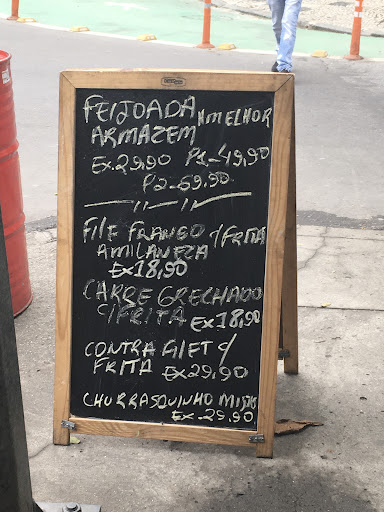 FEIJOADA A MELHOR
ARMAZEM
EX.29,90 P1-49,90
P2-69,90
FILE FRANGO C/FRITA
AMILANEZA
EX18,90
CARRE GRECHADO
C/FRITA EX18,90
CONTRA FILET C/
FRITA EX29,90
CHURRASQUINHO MISTO
EX-29,90